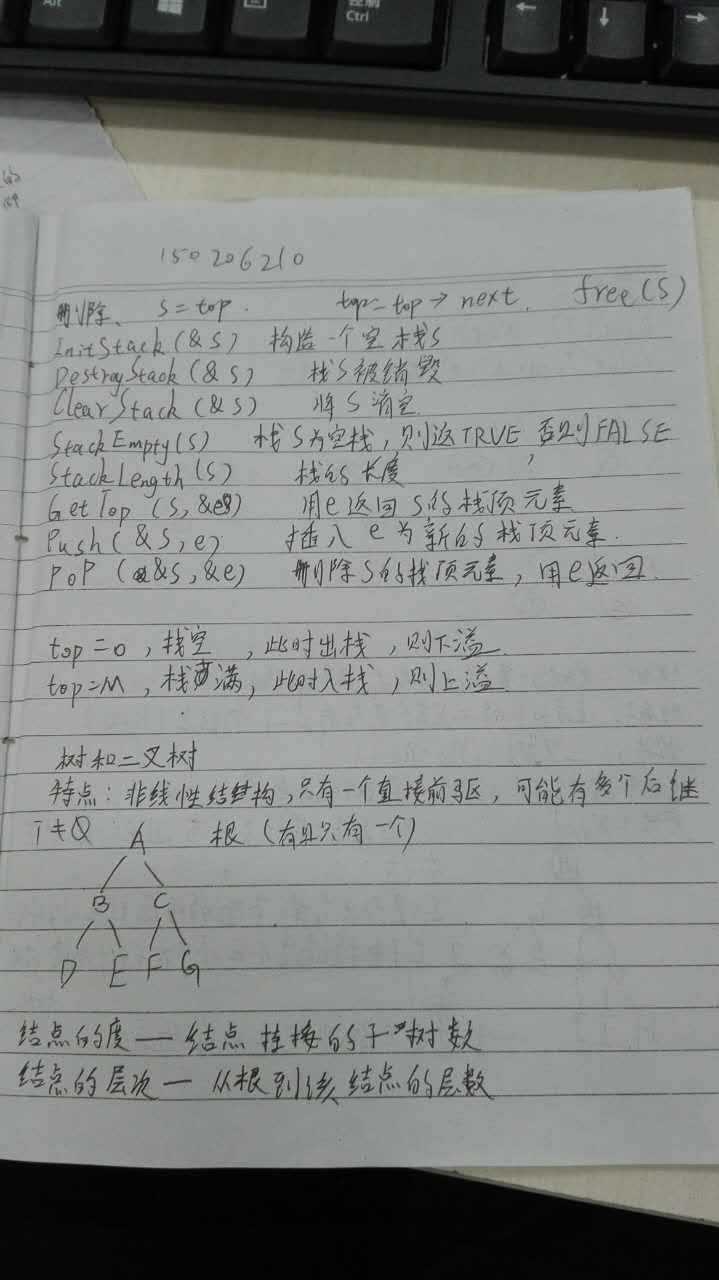 Alt
控制
Ctrl
← ↓ →
150206210
删除、 s=top. top=top→next. free(S)
InitStack(&S) 构造一个空栈S
DestroyStack(&S) 栈S被销毁
ClearStack(&S) 将S清空
StackEmpty(S) 栈S为空栈,则返TRUE,否则FALSE
StackLength(S) 栈的长度
GetTop(S,&e) 用e返回S的栈顶元素
Push(&S,e) 插入e为新的栈顶元素.
POP(&S,&e) 删除S的栈顶元素,用e返回.
top=0,栈空,此时出栈,则下溢
top=M,栈满,此时入栈,则上溢
树和二叉树
特点:非线性结构,只有一个直接前驱,可能有多个后继
T≠Q A 根(有且只有一个)
B C
D E F G
结点的度—结点挂接的子树数
结点的层次—从根到该结点的层数